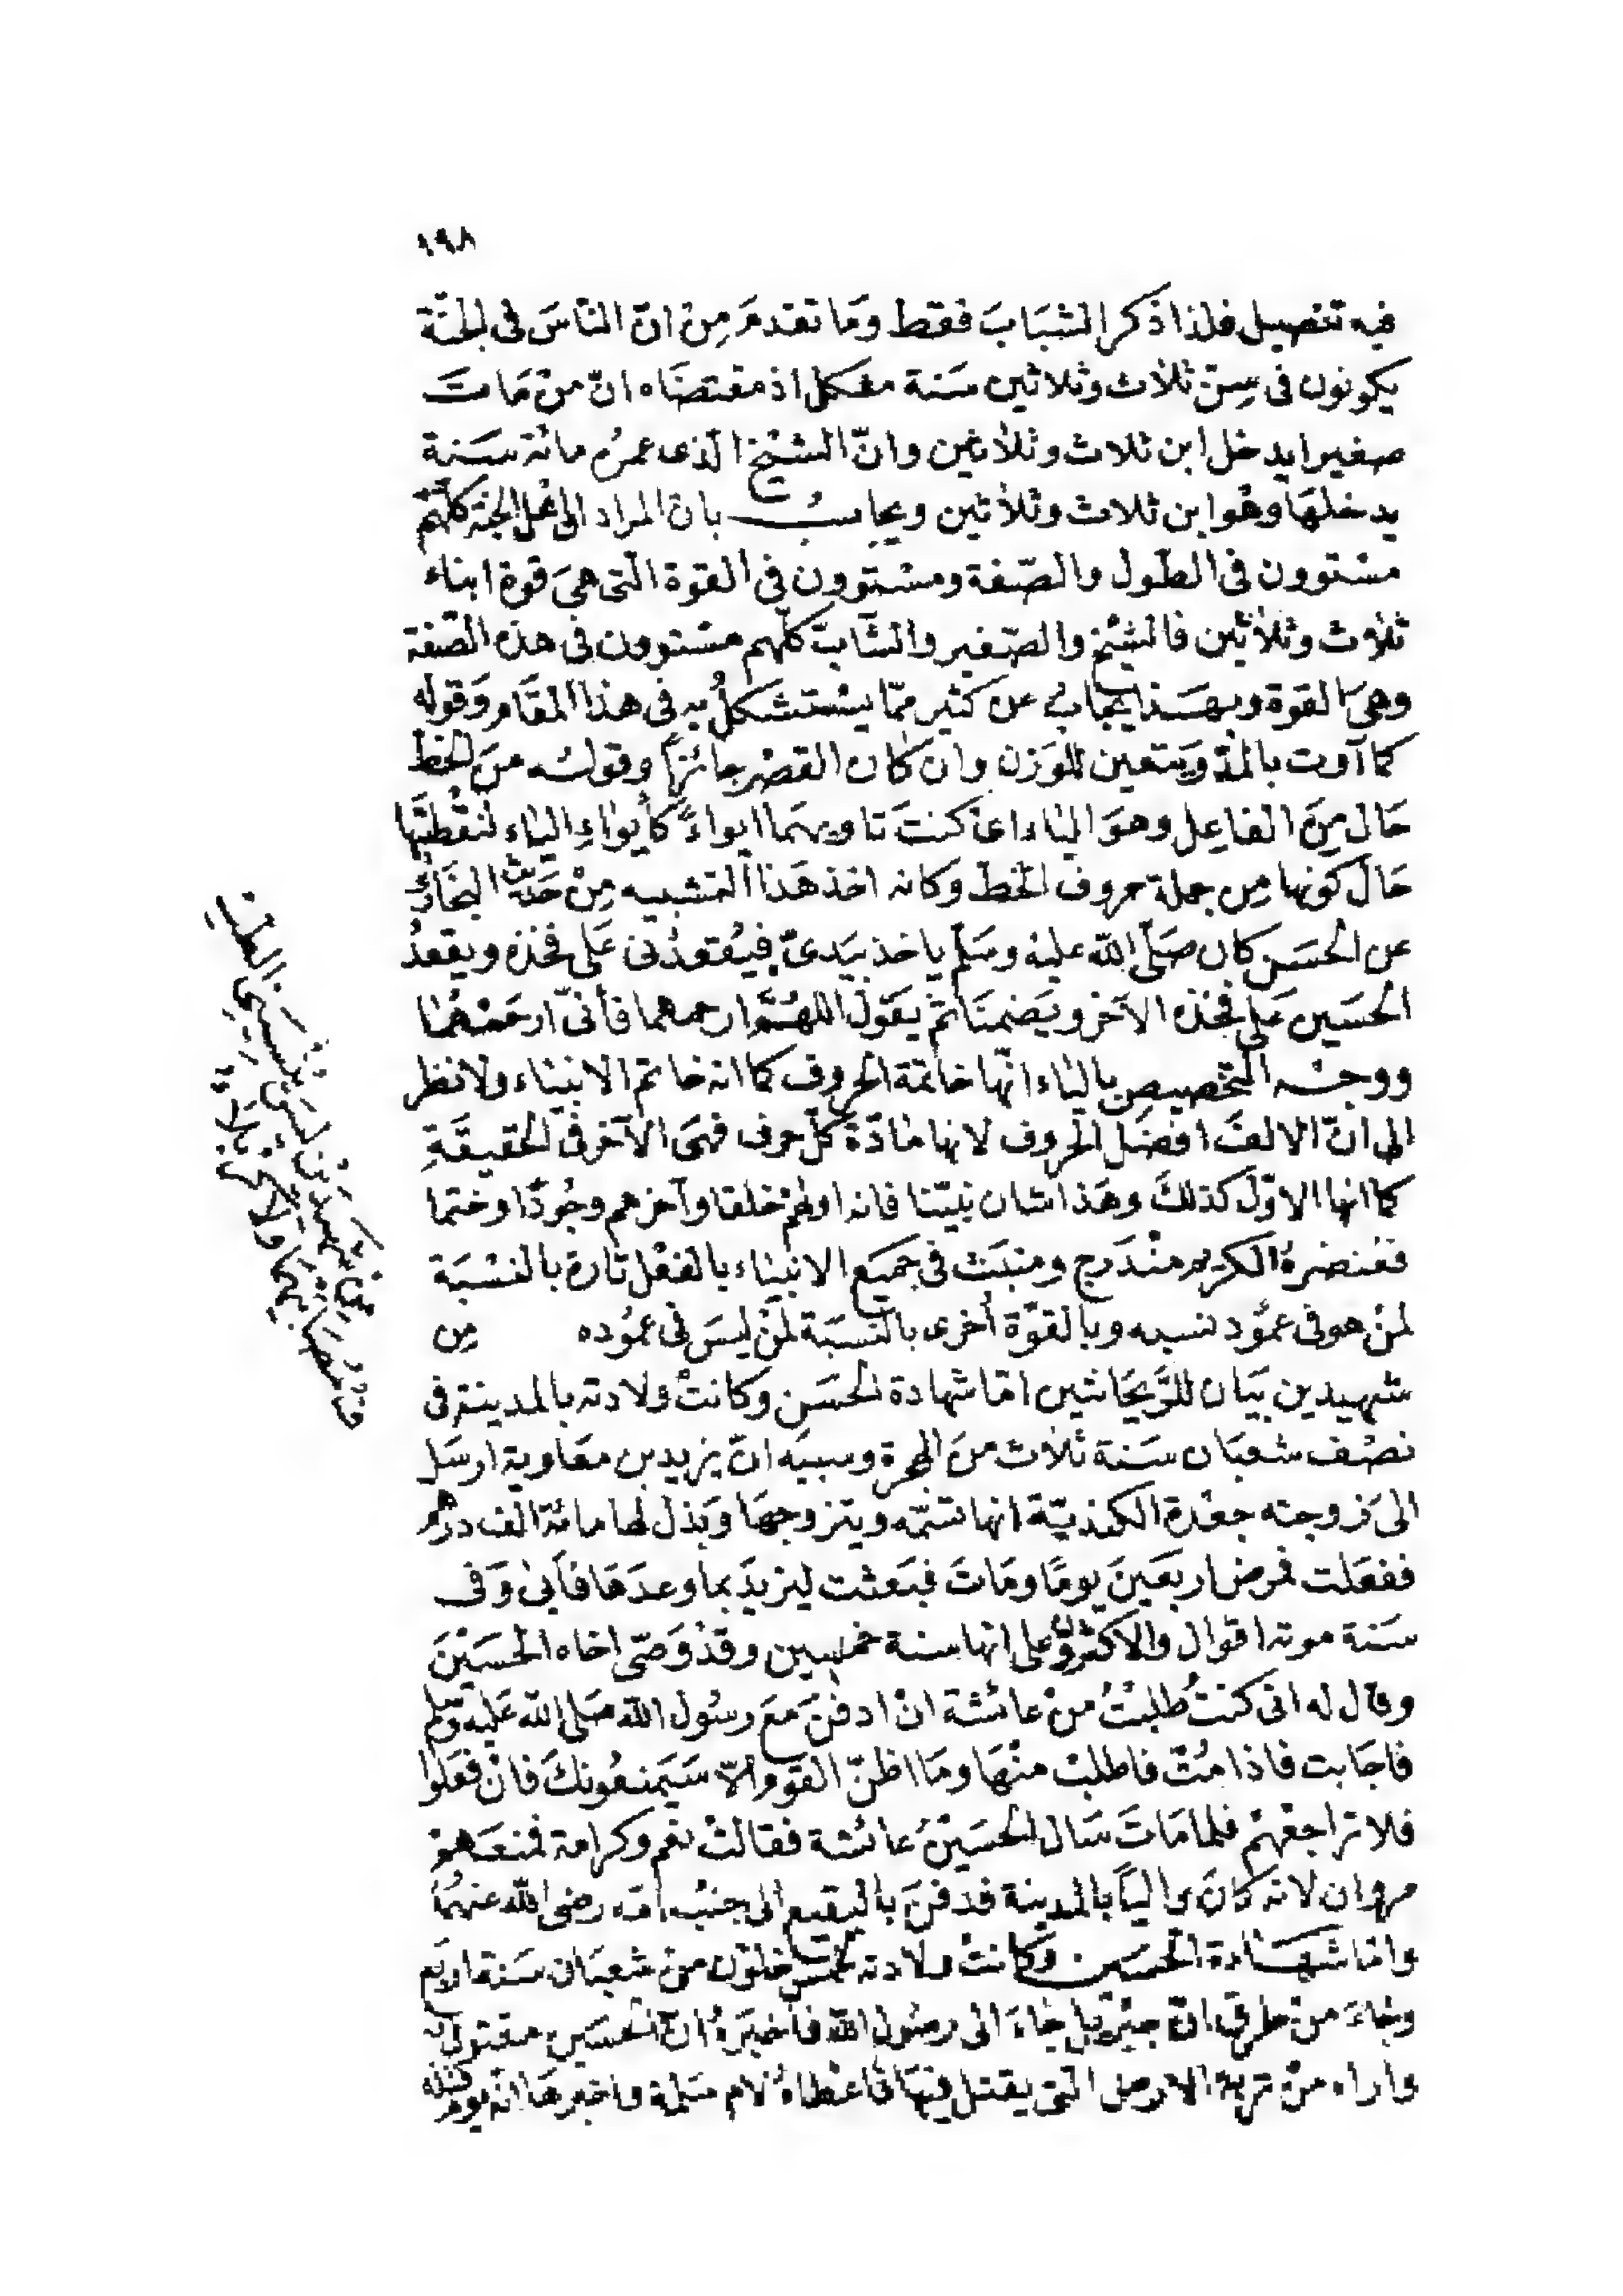 ١٩٨
فيه تفصيل فلذا ذكر الشبَابَ فقط وَمَا تقدمَ مِنْ انّ النّاسَ فى الجنّة
يكونون فى سِنّ ثلاث وثلاثين سَنة مشكل اذ مقتضَاه انّ منْ مَاتَ
صغيرا يدخل ابن ثلاث وثلاثين وانّ الشيْخ الّذى عمرُه مائة سَنة
يدخلهَا وهُوا بن ثلاث وثلاثين ويجابُ بان المراد انّ اهل الجنة كلّهمْ
مسْتوون فى الطّول والصّفة ومسْتوون فى القوّة الّتى هىَ قوة ابناء
ثلاث وثلاثين فالشيْخ والصّغير والشّابّ كلّهم مسْتوون فى هذه الصّفة
وهىَ القوّة وبهَذا يُجابُ عن كثير ممّا يسْتشكلُ به فى هذا المقَام وَقوله
كما آوت بالمدّ وَيتعين للوَزن وان كان القصْر جائزًا وقوله منَ الخط
حَال مِنَ الفاعِل وهوَ الياء اى كنتَ تاويهمَا ايواءً كأيواءِ الياء لنقْطتَيْها
حَال كونها مِن جملة حروف الخط وكانه اخذ هَذا التشبيه مِنْ حَديْث البخَارىّ
عن الحسَن كان صَلّى اللّه عليْه وسَلّم ياخذ بيَدىّ فيُقعدُنى عَلى فخذه ويقعدُ
الحسَين عَلى فخذه الآخر ويَضمنَا ثم يقَول اللهُمَّ ارحمهما فأنىّ ارحَمْهُمَا
ووجْه التخْصيص بالياء انّها خاتمة الحروف كما انه خاتم الانبيَاء ولا نظر
الى انّ الالفَ افضَل الحروف لانها مَادّة كلّ حرف فهىَ الآخر فى الحقيقَةِ
كما انها الاوّل كذلكَ وهَذا شان نبيّنا فانه اولهمْ خلقا وآخرهم وجُودًا وختما
فعنصرهُ الكريم منْدَرج ومنبَث فى جميَع الانبيَاء بالفعْل تارة بالنسْبَة
لمنْ هو فى عمُود نسبه وبالقوَّة أخرى بالنّسَبَة لمنْ ليسَ فى عموُده مِن
شهيدين بَيَان للرَّيحَانتين امّا شهادة الحسَن وكانتْ ولادته بالمدينة فى
نصْف شعبَان سَنة ثلاث منَ الهجرة وسببَه انّ يزيد بن معَاوية ارسَل
الى زوجته جعْدة الكنديّة انها تسّمه ويتزوجهَا وَبذل لها مائة الف درهم
ففعَلت فمرض اربعَينَ يومًا ومَاتَ فبَعثت ليزيدَ بما وعدَهَا فأبىٰ وَفى
سَنة موته اقوال والاكثرون على انها سنة خمسين وقدْ وَصّى اخاه الحسَيْنَ
وقال له انى كنتُ طلبْتُ منْ عائشة انْ ادفنَ مَعَ رسُول اللّه صَلى اللّه عَليْه وسَلم
فاجَابت فاذا مُتّ فاطلبْ منْهَا ومَا اظنّ القَوم الّا سَيَمنعُونكَ فانْ فعَلوا
فلا تراجعْهمْ فلما مَاتَ سَال الحسَيْنُ عائشة فقالتْ نعَم وكرامة فمنعَهمْ
مروان لانه كانَ واليًا بالمدينة فدفنَ بالبقيع الى جنْب امّه رضى اللّه عنهُمَا
وامّا شهَادة الحسَين وَكانتْ ولادته لخمس خلوْن منْ شعبَان سَنة اربَع
وجَاءَ منْ طرق انّ جبْريل جَاءَ الى رسُول اللّه فأخبَرهُ انّ الحسَين مقتول
واراه منْ تربة الارض الّتى يقتل فيْهَا فاعْطاهُ لام سَلمة واخبرهَا انّه يومَ قتله
مِن شهيدَيْن ليْسَ يُنْسِينى الطَفُّ
مُصَابَيْهِما ولا كَرْبَلاءُ